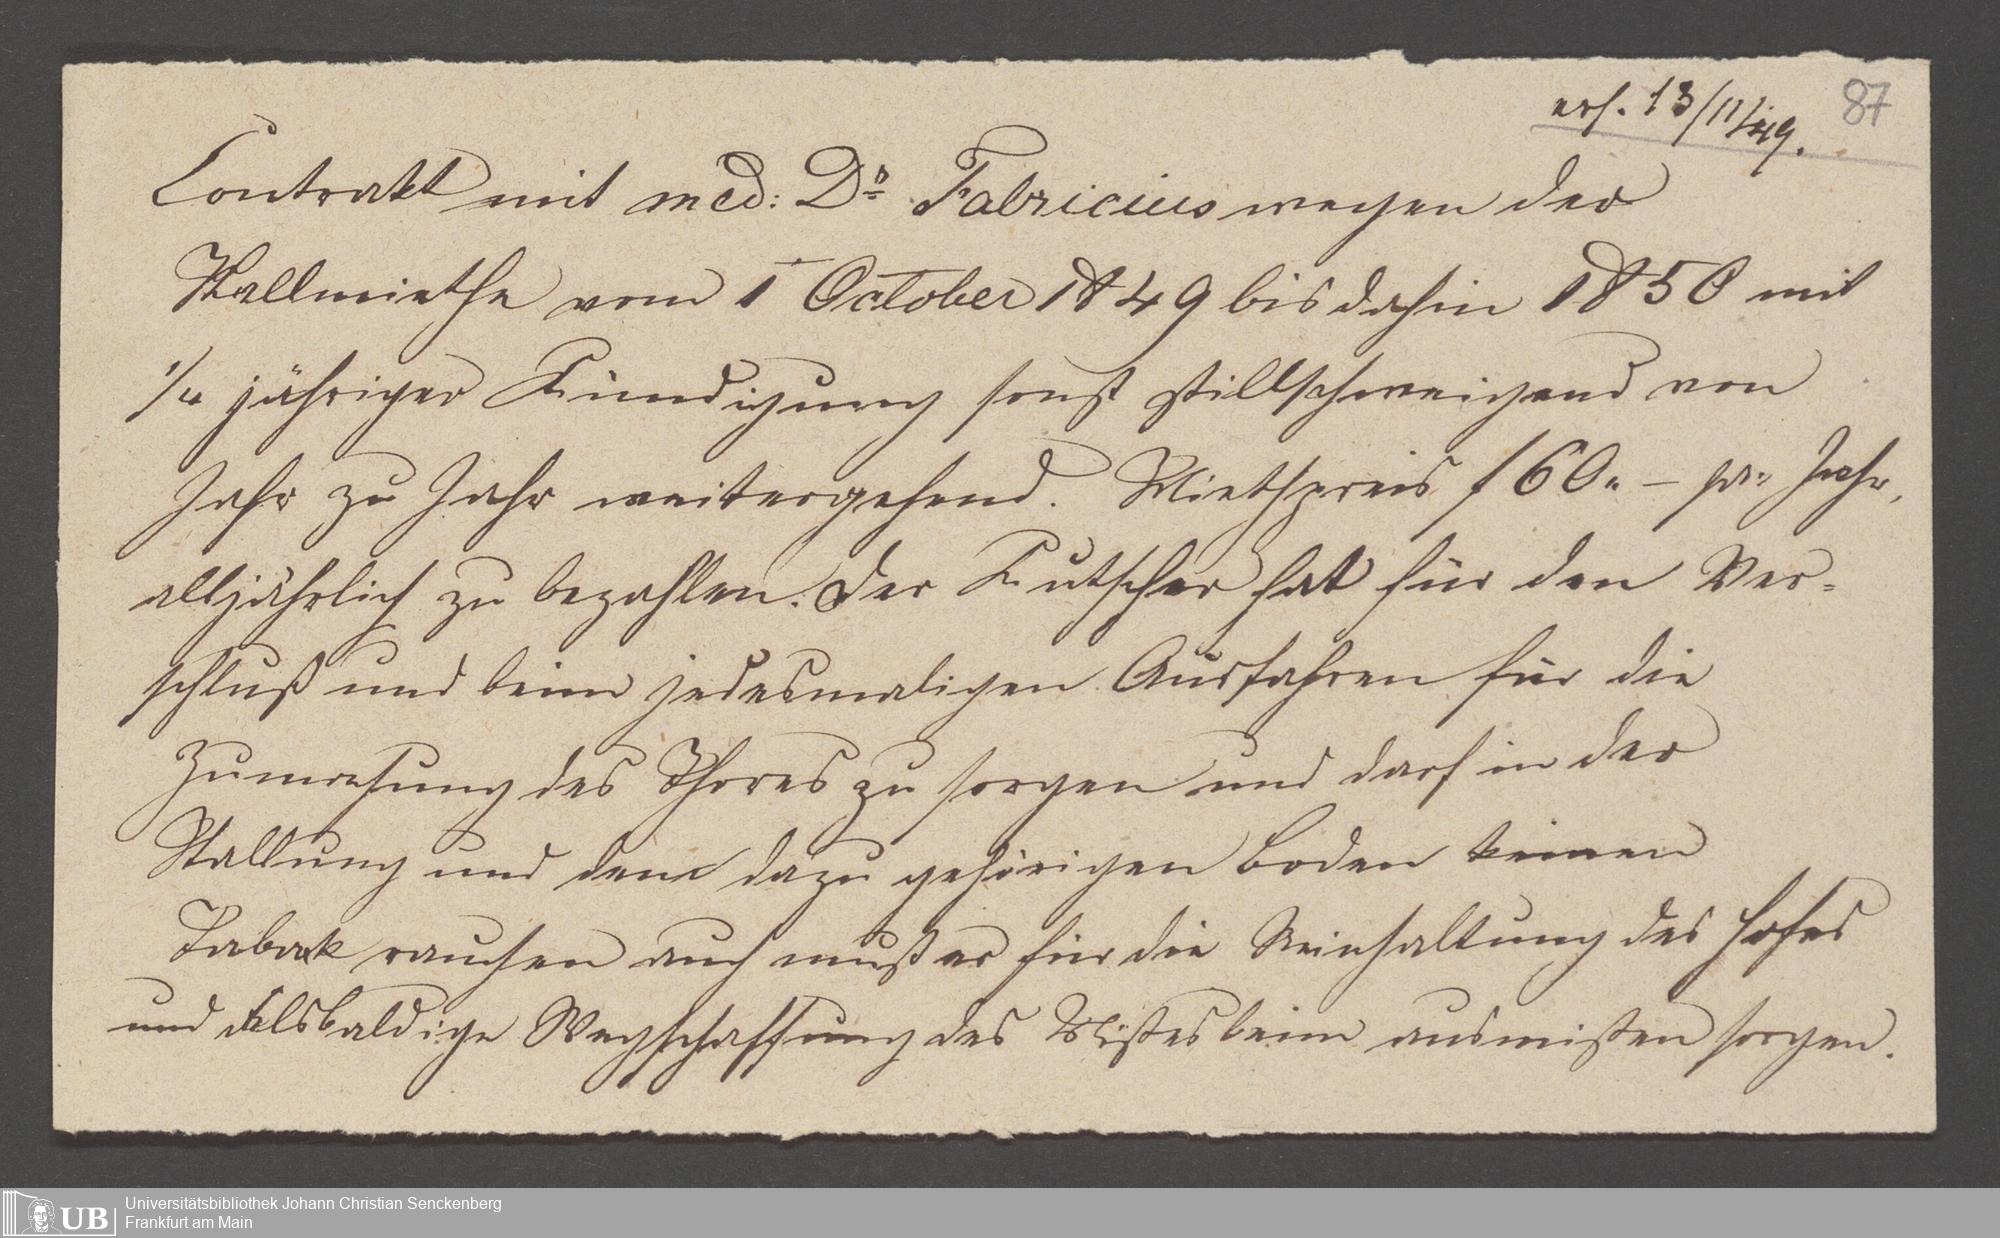 erh. 13/11/49.
87
Contrakt mit med: Dr Fabricius wegen der
Stallmiethe vom 1 October 1849 bis dahin 1850 mit
1/4 jähriger Kündigung sonst stillschweigend von
Jahr zu Jahr weitergehend. Miethpreis f 60 „ – pr. Jahr,
alljährlich zu bezahlen. Der Kutscher hat für den Ver-
schluß und beim jedesmaligen Ausfahren für die
Zumachung des Thores zu sorgen und darf in der
Stallung und dem dazu gehörigen Boden keinen
Taback rauchen auch muß er für die Reinhaltung des Hofes
und alsbaldige Wegschaffung des Mistes beim ausmisten sorgen.
UB
Universitätsbibliothek Johann Christian Senckenberg
Frankfurt am Main